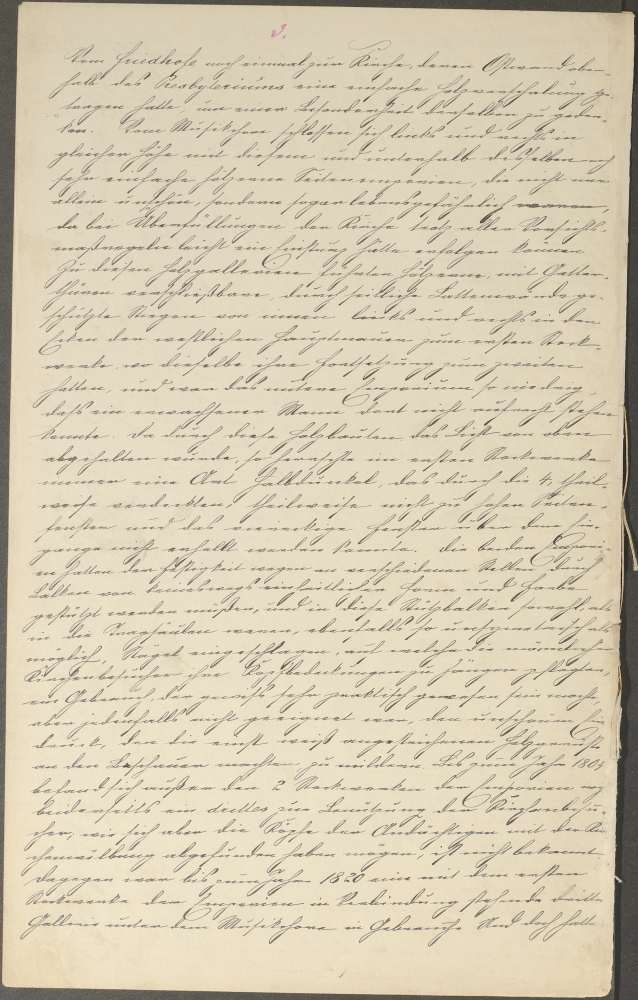 3.
Vom Friedhofe noch einmal zur Kirche, deren Ostwand ober-
halb des Presbyteriums eine einfache Holzverschalung ge-
tragen hatte, um einer Besonderheit derselben zu geden-
ken. Vom Musikchore schlossen sich links und rechts in
gleicher Höhe mit diesem und unterhalb desselben noch
sehr einfache hölzerne Seitenemporien, die nicht nur
allein unschön, sondern sogar lebensgefährlich waren,
da bei Überfüllungen der Kirche trotz aller Vorsichts-
maßregeln leicht ein Einsturz hätte erfolgen können.
Zu diesen Holzgallerien führten hölzerne, mit Gatter-
thüren verschließbare, durch seitliche Lattenwände ge-
schützte Stiegen von innen links und rechts in den
Ecken der westlichen Hauptmauer zum ersten Stock-
werke, wo dieselbe ihre Fortsetzung zum zweiten
hatten, und war das untere Emporium so niedrig,
dass ein erwachsener Mann dort nicht aufrecht stehen
konnte. Da durch diese Holzbauten das Licht von oben
abgehalten wurde, so herrschte im ersten Stockwerke
immer eine Art Halbdunkel, das durch die 4, theil-
weise verdeckten, theilweise nicht zu hohen Seiten-
fenster und das viereckige Fenster über dem Ein-
gange nicht erhellt werden konnte. Die beiden Empori-
en hatten der Festigkeit wegen an verschiedenen Stellen durch
Balken von keineswegs einheitlicher Form und Farbe
gestützt werden müßen, und in diese Stützbalken sowohl, als
in die Tragsäulen waren, ebenfalls so unsymetrisch als
möglich, Nägel eingeschlagen, auf welche die männlichen
Kirchenbesucher ihre Kopfbedeckungen zu hängen pflegten,
ein Gebrauch, der gewiss sehr praktisch gewesen sein mochte,
aber jedenfalls nicht geeignet war, den unschönen Ein-
druck, den die einst weiß angestrichenen Holzgerüste
an den Beschauer machten zu mildern. Bis zum Jahre 1804
befand sich außer den 2 Stockwerken der Emporien noch
beiderseits ein drittes zur Benützung der Kirchenbesu-
cher; wie sich aber die Köpfe der Andächtigen mit der Kir-
chenwölbung abgefunden haben mögen, ist nicht bekannt.
Dagegen war bis zum Jahre 1820 eine mit dem ersten
Stockwerke der Emporien in Verbindung stehende dritte
Gallerie unter dem Musikchore in Gebrauch. Und doch hatte